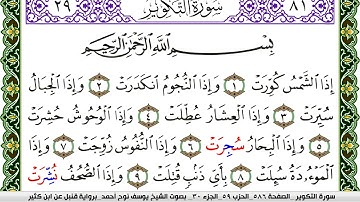 ٢٩ سُورَةُ التَّكْوِيرِ ٨١
بِسْمِ اللَّهِ الرَّحْمَٰنِ الرَّحِيمِ
إِذَا الشَّمْسُ كُوِّرَتْ ١ وَإِذَا النُّجُومُ انكَدَرَتْ ٢ وَإِذَا الْجِبَالُ
سُيِّرَتْ ٣ وَإِذَا الْعِشَارُ عُطِّلَتْ ٤ وَإِذَا الْوُحُوشُ حُشِرَتْ
٥ وَإِذَا الْبِحَارُ سُجِرَتْ ٦ وَإِذَا النُّفُوسُ زُوِّجَتْ ٧ وَإِذَا
الْمَوْءُۥدَةُ سُئِلَتْ ٨ بِأَيِّ ذَنۢبٍ قُتِلَتْ ٩ وَإِذَا الصُّحُفُ نُشِّرَتْ
سورة التكوير الصفحة ٥٨٦ الحزب ٥٩ الجزء ٣٠ بصوت الشيخ يوسف نوح أحمد برواية قنبل عن ابن كثير